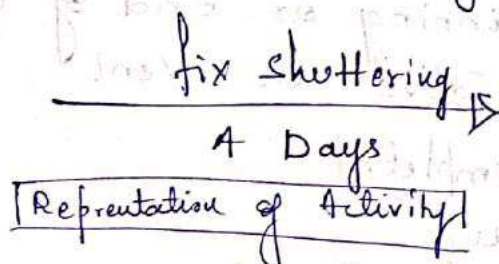 fix shuttering
4 Days
Repreutation of Activity